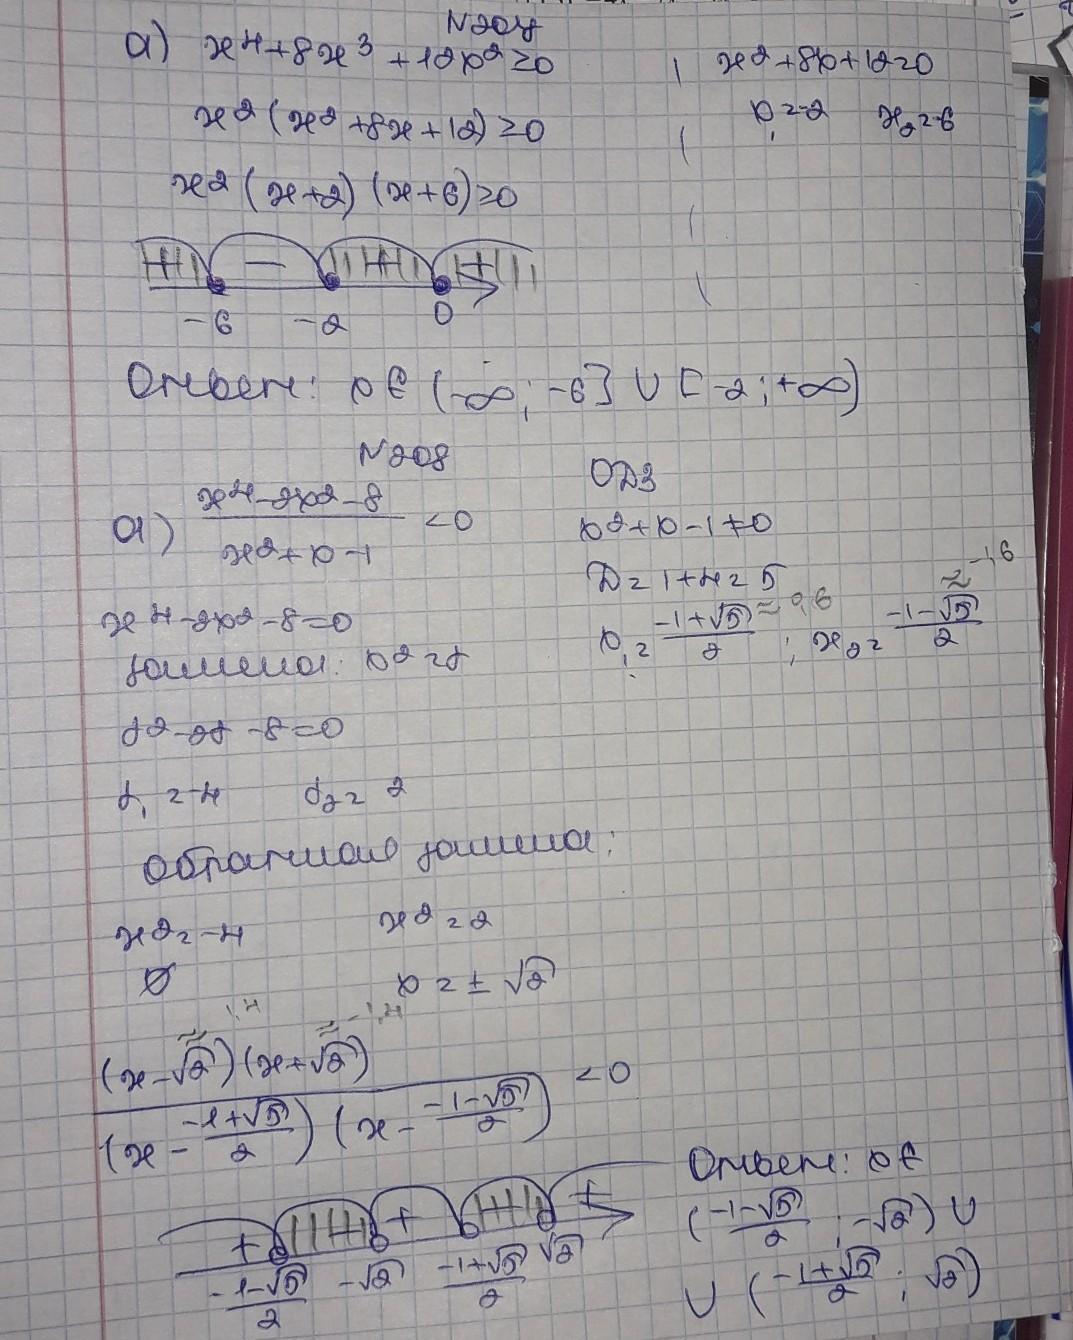 N204
а) x⁴+8x³+12x²≥0
x²(x²+8x+12)≥0
x²(x+2)(x+6)≥0
x²+8x+12=0
x₁=-2 x₂=-6
+ − + +
-6 -2 0
Ответ: x∈(-∞;-6]∪[-2;+∞)
N208
а) (x⁴-2x²-8)/(x²+x-1) <0
ОДЗ
x²+x-1≠0
D=1+4=5
x₁=(-1+√5)/2 ≈0,6; x₂=(-1-√5)/2 ≈-1,6
x⁴-2x²-8=0
замена: x²=t
t²-2t-8=0
t₁=-4 t₂=2
обратная замена:
x²=-4 x²=2
∅ x=±√2
≈1,4 ≈-1,4
(x-√2)(x+√2)/((x-(-1+√5)/2)(x-(-1-√5)/2)) <0
+ + +
(-1-√5)/2 -√2 (-1+√5)/2 √2
Ответ: x∈
((-1-√5)/2;-√2)∪
∪((-1+√5)/2;√2)